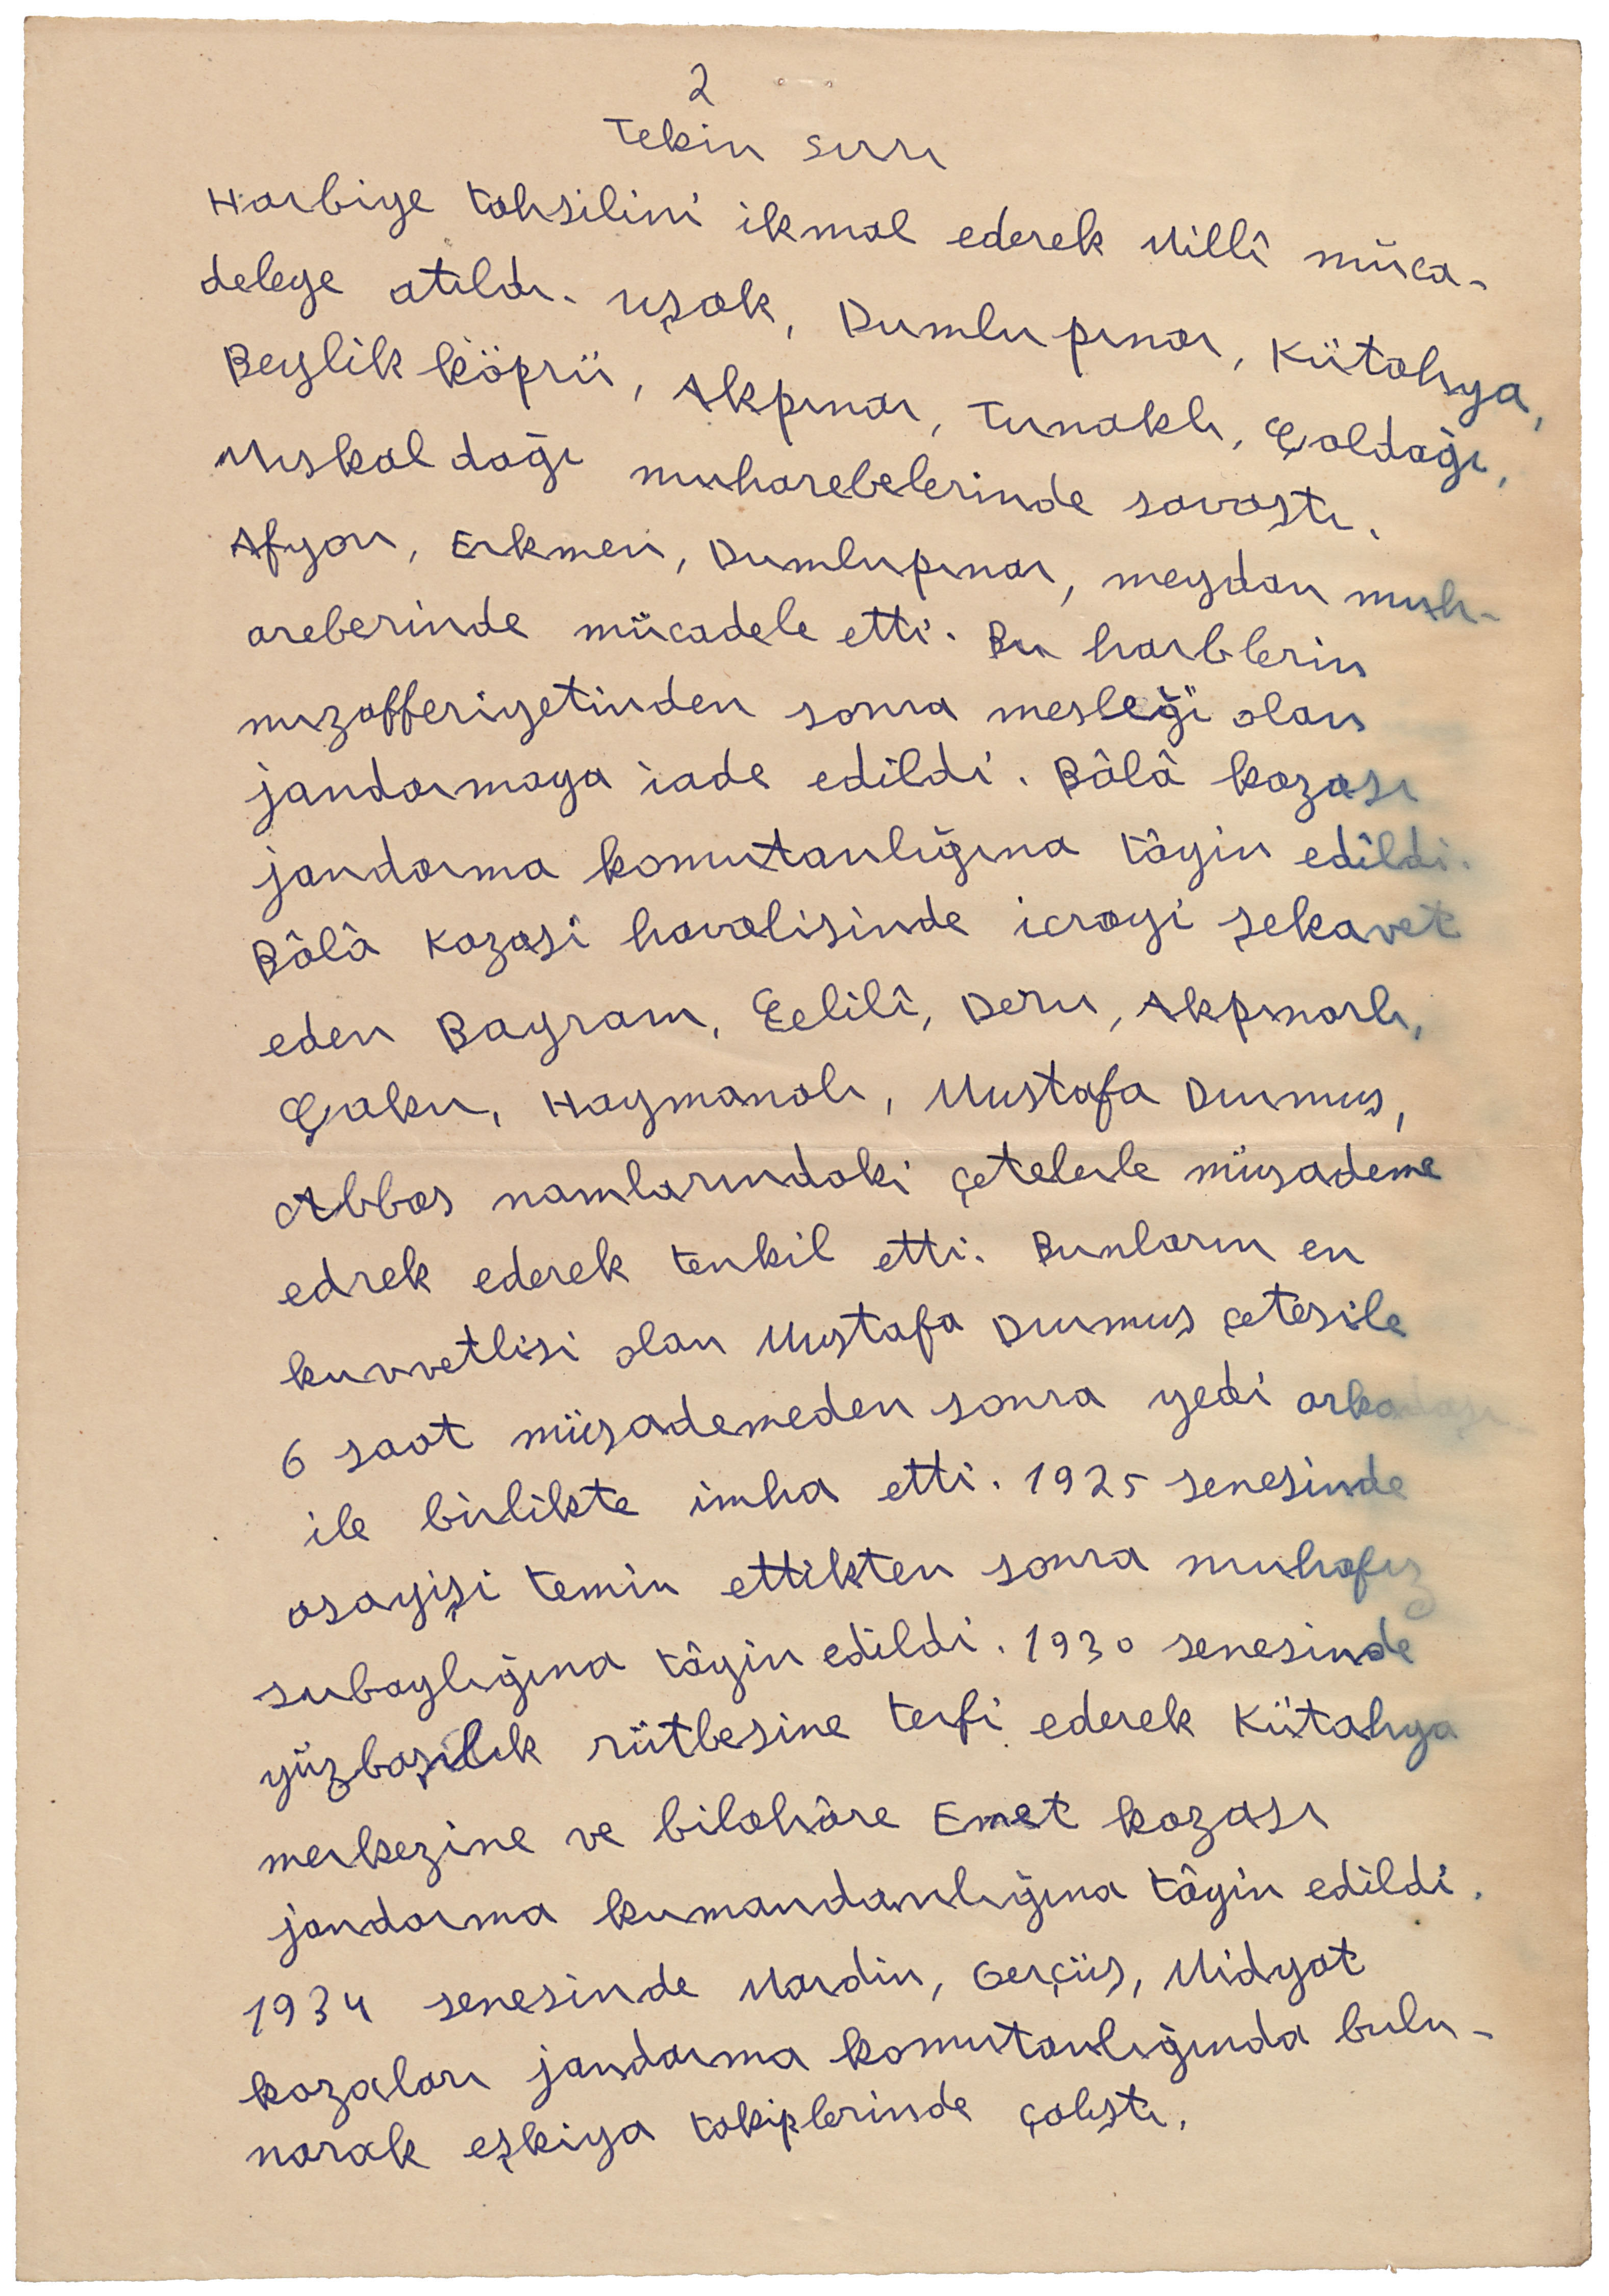 2
Tekin Sırrı
Harbiye tahsilini ikmal ederek Millî müca-
deleye atıldı. Uşak, Dumlupınar, Kütahya,
Beylik köprü, Akpınar, Tırnaklı, Çaldağı,
Mıskal dağı muharebelerinde savaştı.
Afyon, Erkmen, Dumlupınar, meydan muh-
areberinde mücadele etti. Bu harblerin
muzafferiyetinden sonra mesleği olan
jandarmaya iade edildi. Bâlâ kazası
jandarma komutanlığına tâyin edildi.
Bâlâ kazasi havalisinde icrayi şekavet
eden Bayram, Eelilî, Deru, Akpınarlı,
Çaku, Haymanalı, Mustafa Durmuş,
Abbas namlarındaki çetelerle müsademe
edrek ederek tenkil etti. Bunların en
kuvvetlisi olan Mustafa Durmuş çetesile
6 saat müsademeden sonra yedi arkadaşı
ile birlikte imha etti. 1925 senesinde
asayişi temin ettikten sonra muhafız
subaylığına tâyin edildi. 1930 senesinde
yüzbaşılık rütbesine terfi ederek Kütahya
merkezine ve bilahâre Emet kazası
jandarma kumandanlığına tâyin edildi.
1934 senesinde Mardin, Gerçüş, Midyat
kazaları jandarma komutanlığında bulu-
narak eşkiya takiplerinde çalıştı.